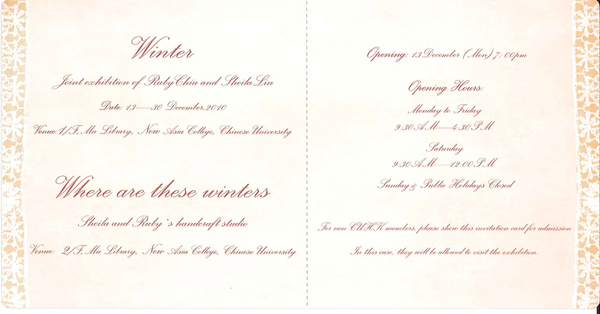 Winter
Joint exhibition of Ruby Chiu and Sheila Lin
Date: 13—30 December, 2010
Venue: 1/F, Mu Library, New Asia College, Chinese University
Where are these winters
Sheila and Ruby 's handcraft studio
Venue: 2/F, Mu Library, New Asia College, Chinese University
Opening: 13 December (Mon) 7:00pm
Opening Hours:
Monday to Friday
9:30 AM—4:30 PM
Saturday
9:30 AM—12:00 PM
Sunday & Public Holidays Closed
For non CUHK members, please show this invitation card for admission.
In this case, they will be allowed to visit the exhibition.